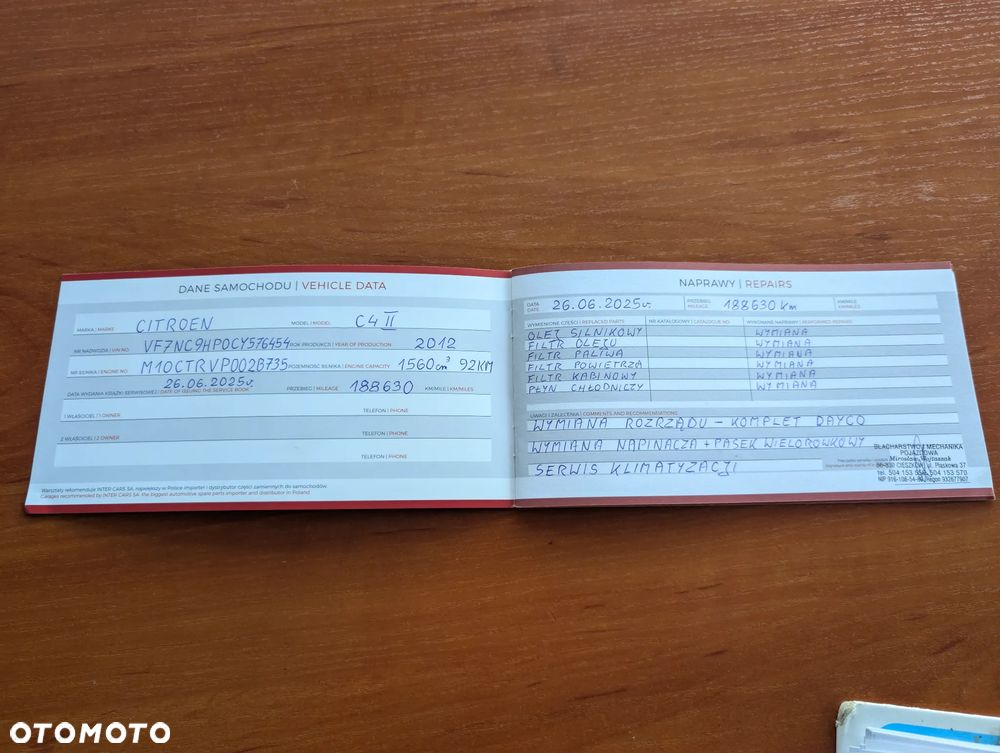 DANE SAMOCHODU | VEHICLE DATA
MARKA | MAKE CITROEN MODEL | MODEL C4 II
NR NADWOZIA | VIN NO. VF7NC9HP0CY576454 ROK PRODUKCJI | YEAR OF PRODUCTION 2012
NR SILNIKA | ENGINE NO. M10CTRVP002B735 POJEMNOŚĆ SILNIKA | ENGINE CAPACITY 1560cm³ 92KM
DATA WYDANIA KSIĄŻKI SERWISOWEJ | DATE OF ISSUING THE SERVICE BOOK 26.06.2025r. PRZEBIEG | MILEAGE 188630 KM/MILE | KM/MILES
1 WŁAŚCICIEL | 1 OWNER TELEFON | PHONE
2 WŁAŚCICIEL | 2 OWNER TELEFON | PHONE
TELEFON | PHONE
Warsztaty rekomenduje INTER CARS SA, największy w Polsce importer i dystrybutor części zamiennych do samochodów.
Garages recommended by INTER CARS SA, the biggest automotive spare parts importer and distributor in Poland
NAPRAWY | REPAIRS
DATA DATE 26.06.2025r. PRZEBIEG MILEAGE 188630 km KM/MILE KM/MILES
WYMIENIONE CZĘŚCI | REPLACED PARTS NR KATALOGOWY | CATALOGUE NO. WYKONANE NAPRAWY | PERFORMED REPAIRS
OLEJ SILNIKOWY WYMIANA
FILTR OLEJU WYMIANA
FILTR PALIWA WYMIANA
FILTR POWIETRZA WYMIANA
FILTR KABINOWY WYMIANA
PŁYN CHŁODNICZY WYMIANA
UWAGI I ZALECENIA | COMMENTS AND RECOMMENDATIONS
WYMIANA ROZRZĄDU - KOMPLET DAYCO
WYMIANA NAPINACZA + PASEK WIELOROWKOWY
SERWIS KLIMATYZACJI
BLACHARSTWO I MECHANIKA
POJAZDOWA
Mirosław Wojtaszak
56-330 CIESZKÓW, ul. Piaskowa 37
tel. 504 153 55 504 153 570
OTOMOTO